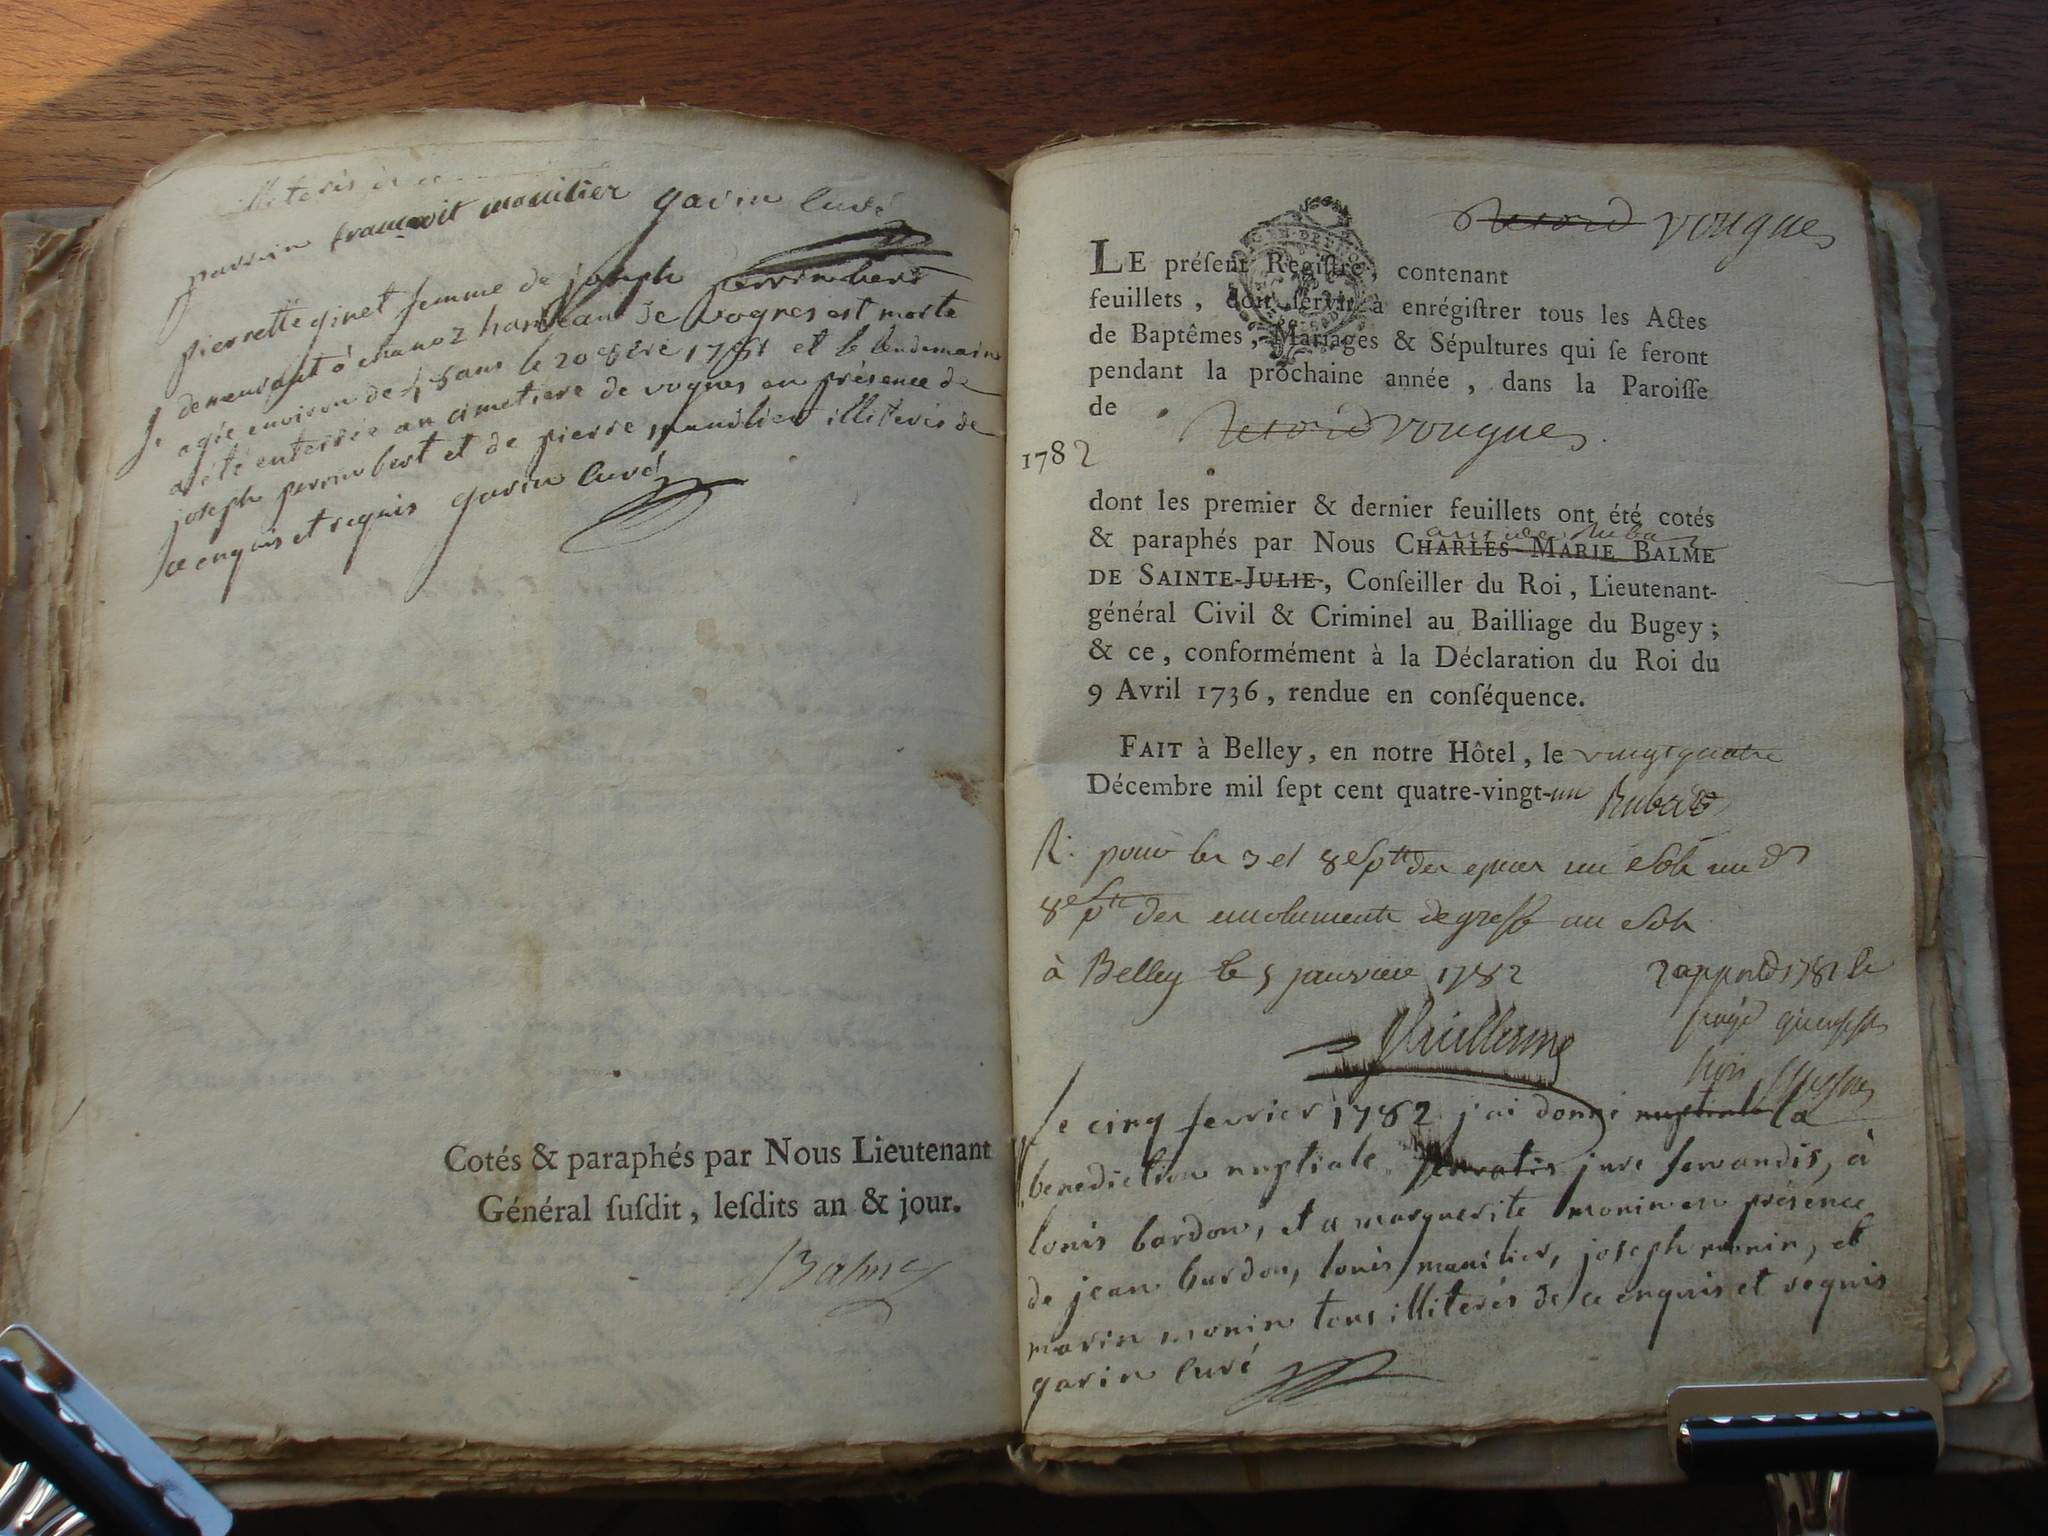 illiterés de ce
parrain francois manilier garin curé
pierrette ginet femme de joseph perrin bert
demeurant à chanoz hameau de vognes est morte
agée environ de 45 ans le 20 1781 et le lendemain
a été enterrée au cimetiere de vognes en présence de
joseph perrin bert et de pierre manilier illiterés de
ce enquis et requis garin curé
Cotés & paraphés par Nous Lieutenant
Général ſuſdit, leſdits an & jour.
Balme
vougnes
LE préſent Regiſtre, contenant
feuillets, doit ſervir à enrégiſtrer tous les Actes
de Baptêmes, Mariages & Sépultures qui ſe feront
pendant la prochaine année, dans la Paroiſſe
de vougnes.
1782
dont les premier & dernier feuillets ont été cotés
& paraphés par Nous CHARLES-MARIE BALME
DE SAINTE-JULIE, Conſeiller du Roi, Lieutenant-
général Civil & Criminel au Bailliage du Bugey;
& ce, conformément à la Déclaration du Roi du
9 Avril 1736, rendue en conſéquence.
FAIT à Belley, en notre Hôtel, le vingt quatre
Décembre mil ſept cent quatre-vingt-un
R. pour les 3 et 8e des un sols un
8e des emoluments de greffe un sols
à Belley le 5 janvier 1782
Guillerme
le cinq fevrier 1782 j'ai donné nuptiale la
benediction nuptiale servatis jure servandis, à
louis bardon, et a marguerite monin en présence
de jean bardon, louis manilier, joseph monin, et
marin monin tous illiterés de ce enquis et requis
garin curé